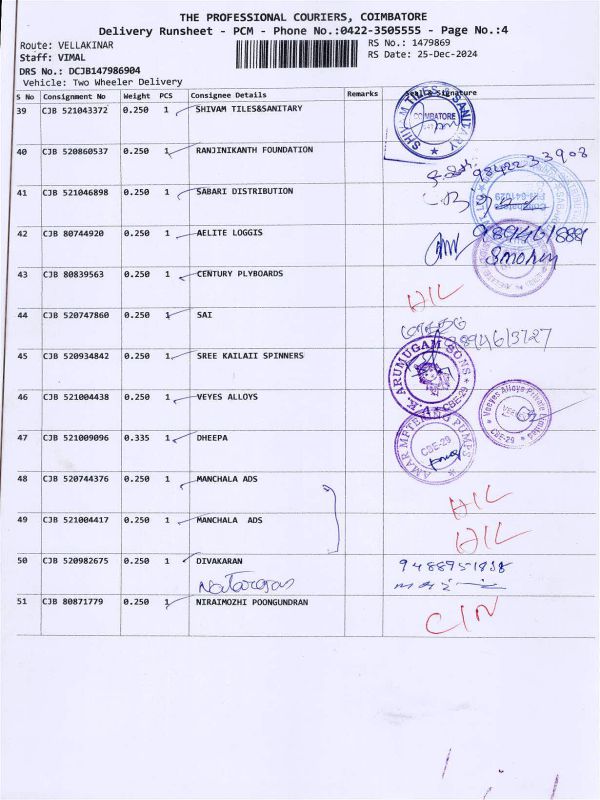 THE PROFESSIONAL COURIERS, COIMBATORE
Delivery Runsheet - PCM - Phone No.:0422-3505555 - Page No.:4
Route: VELLAKINAR RS No.: 1479869
Staff: VIMAL RS Date: 25-Dec-2024
DRS No.: DCJB147986904
Vehicle: Two Wheeler Delivery
S No Consignment No Weight PCS Consignee Details Remarks Signature
39 CJB 521043372 0.250 1 SHIVAM TILES&SANITARY
SHIVAM TILES & SANITARY COIMBATORE
40 CJB 520860537 0.250 1 RANJINIKANTH FOUNDATION
9842233908
41 CJB 521046898 0.250 1 SABARI DISTRIBUTION
42 CJB 80744920 0.250 1 AELITE LOGGIS
43 CJB 80839563 0.250 1 CENTURY PLYBOARDS
44 CJB 520747860 0.250 1 SAI
9894613727
45 CJB 520934842 0.250 1 SREE KAILAII SPINNERS
K. ARUMUGAM SONS CBE-29
46 CJB 521004438 0.250 1 VEYES ALLOYS
Veeyes Alloys Private Limited CBE-29
47 CJB 521009096 0.335 1 DHEEPA
AMAR METERING PUMPS CBE-29
48 CJB 520744376 0.250 1 MANCHALA ADS
49 CJB 521004417 0.250 1 MANCHALA ADS
50 CJB 520982675 0.250 1 DIVAKARAN
Natarajan
51 CJB 80871779 0.250 1 NIRAIMOZHI POONGUNDRAN